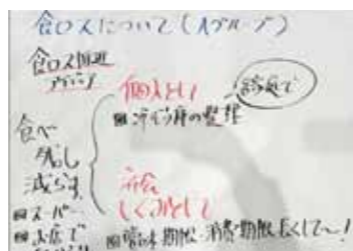 食ロスについて(Aグループ)
食ロス関連
個人として
家庭で
冷ぞう庫の整理
食べ
残し
減らす
社会
しくみとして
スーパー
お店で
賞味期限・消費期限 長くして〜!